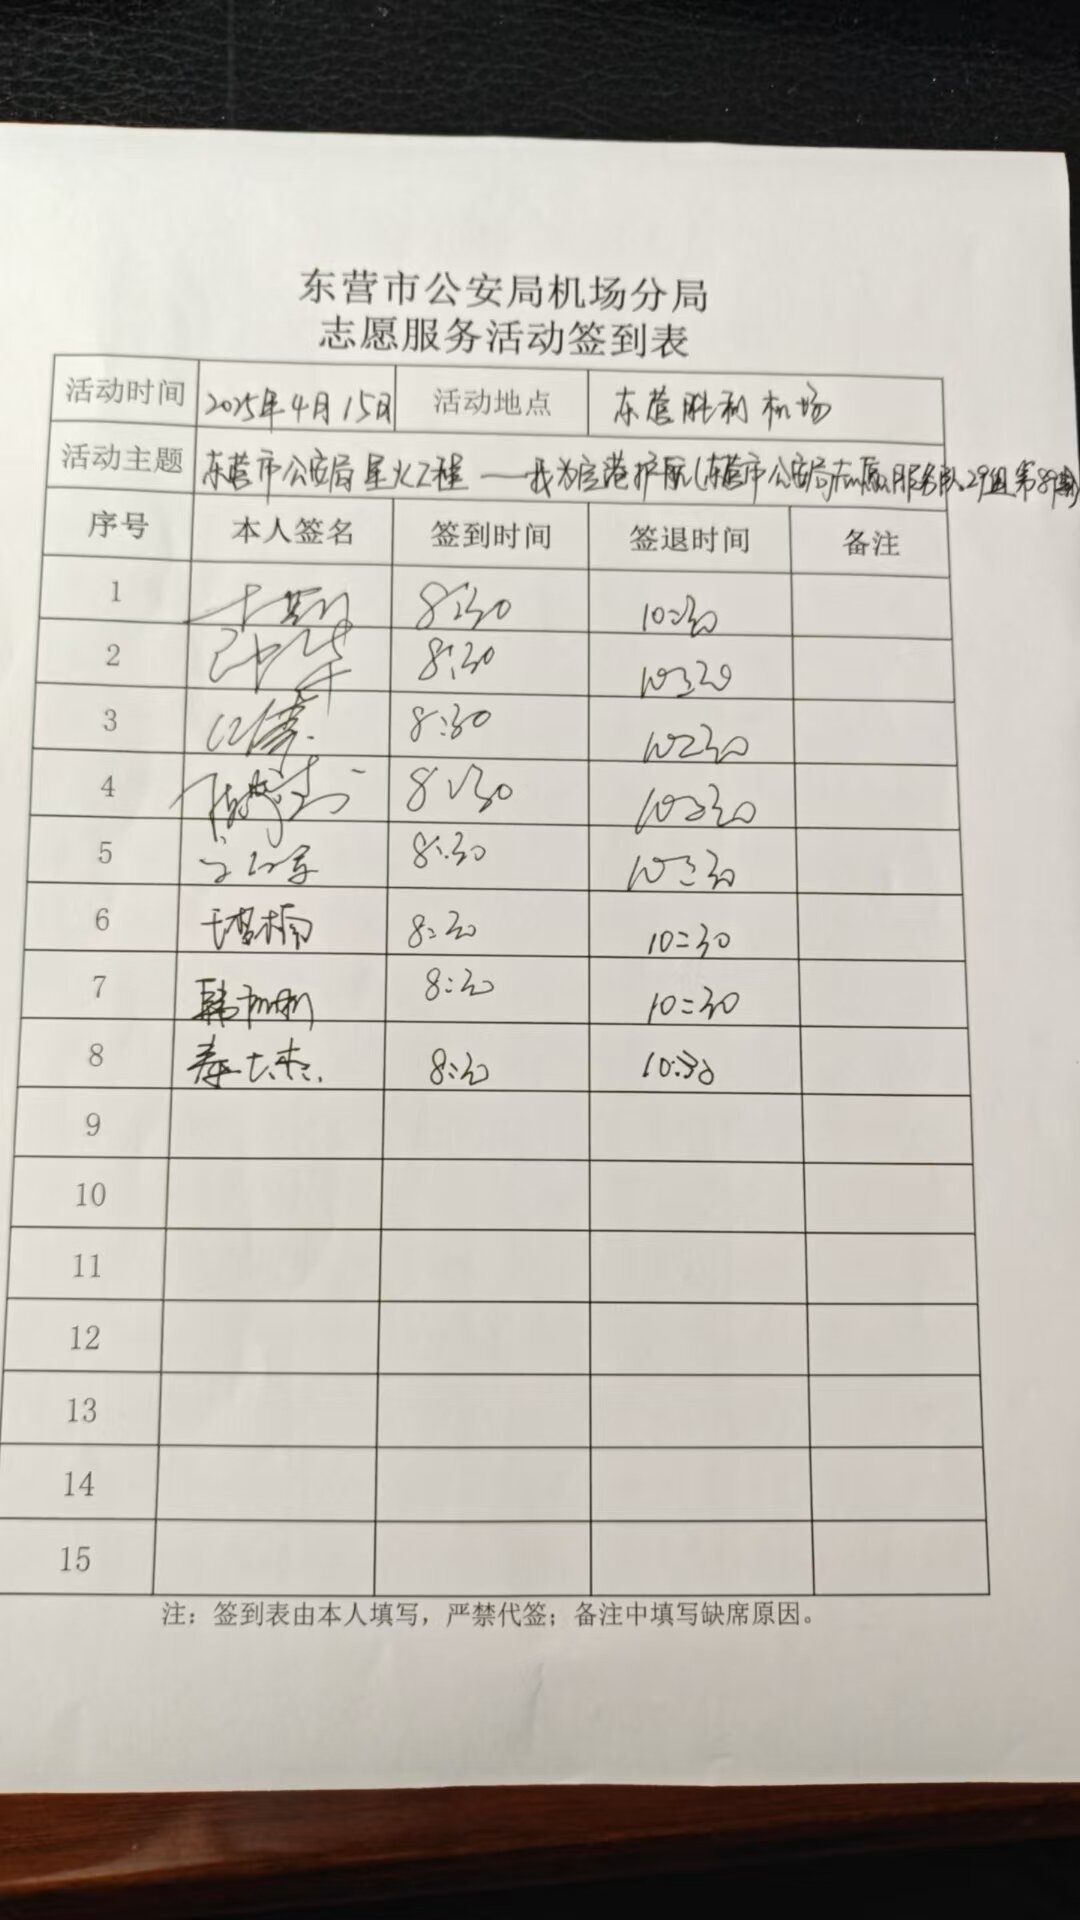 东营市公安局机场分局
志愿服务活动签到表
活动时间 2025年4月15日 活动地点 东营胜利机场
活动主题 东营市公安局星火工程——我为空港护航(东营市公安局志愿服务队29组第89期)
序号 本人签名 签到时间 签退时间 备注
1 8:30 10:30
2 8:30 10:30
3 8:30 10:30
4 8:30 10:30
5 8:30 10:30
6 8:30 10:30
7 8:30 10:30
8 8:30 10:30
9
10
11
12
13
14
15
注：签到表由本人填写，严禁代签；备注中填写缺席原因。